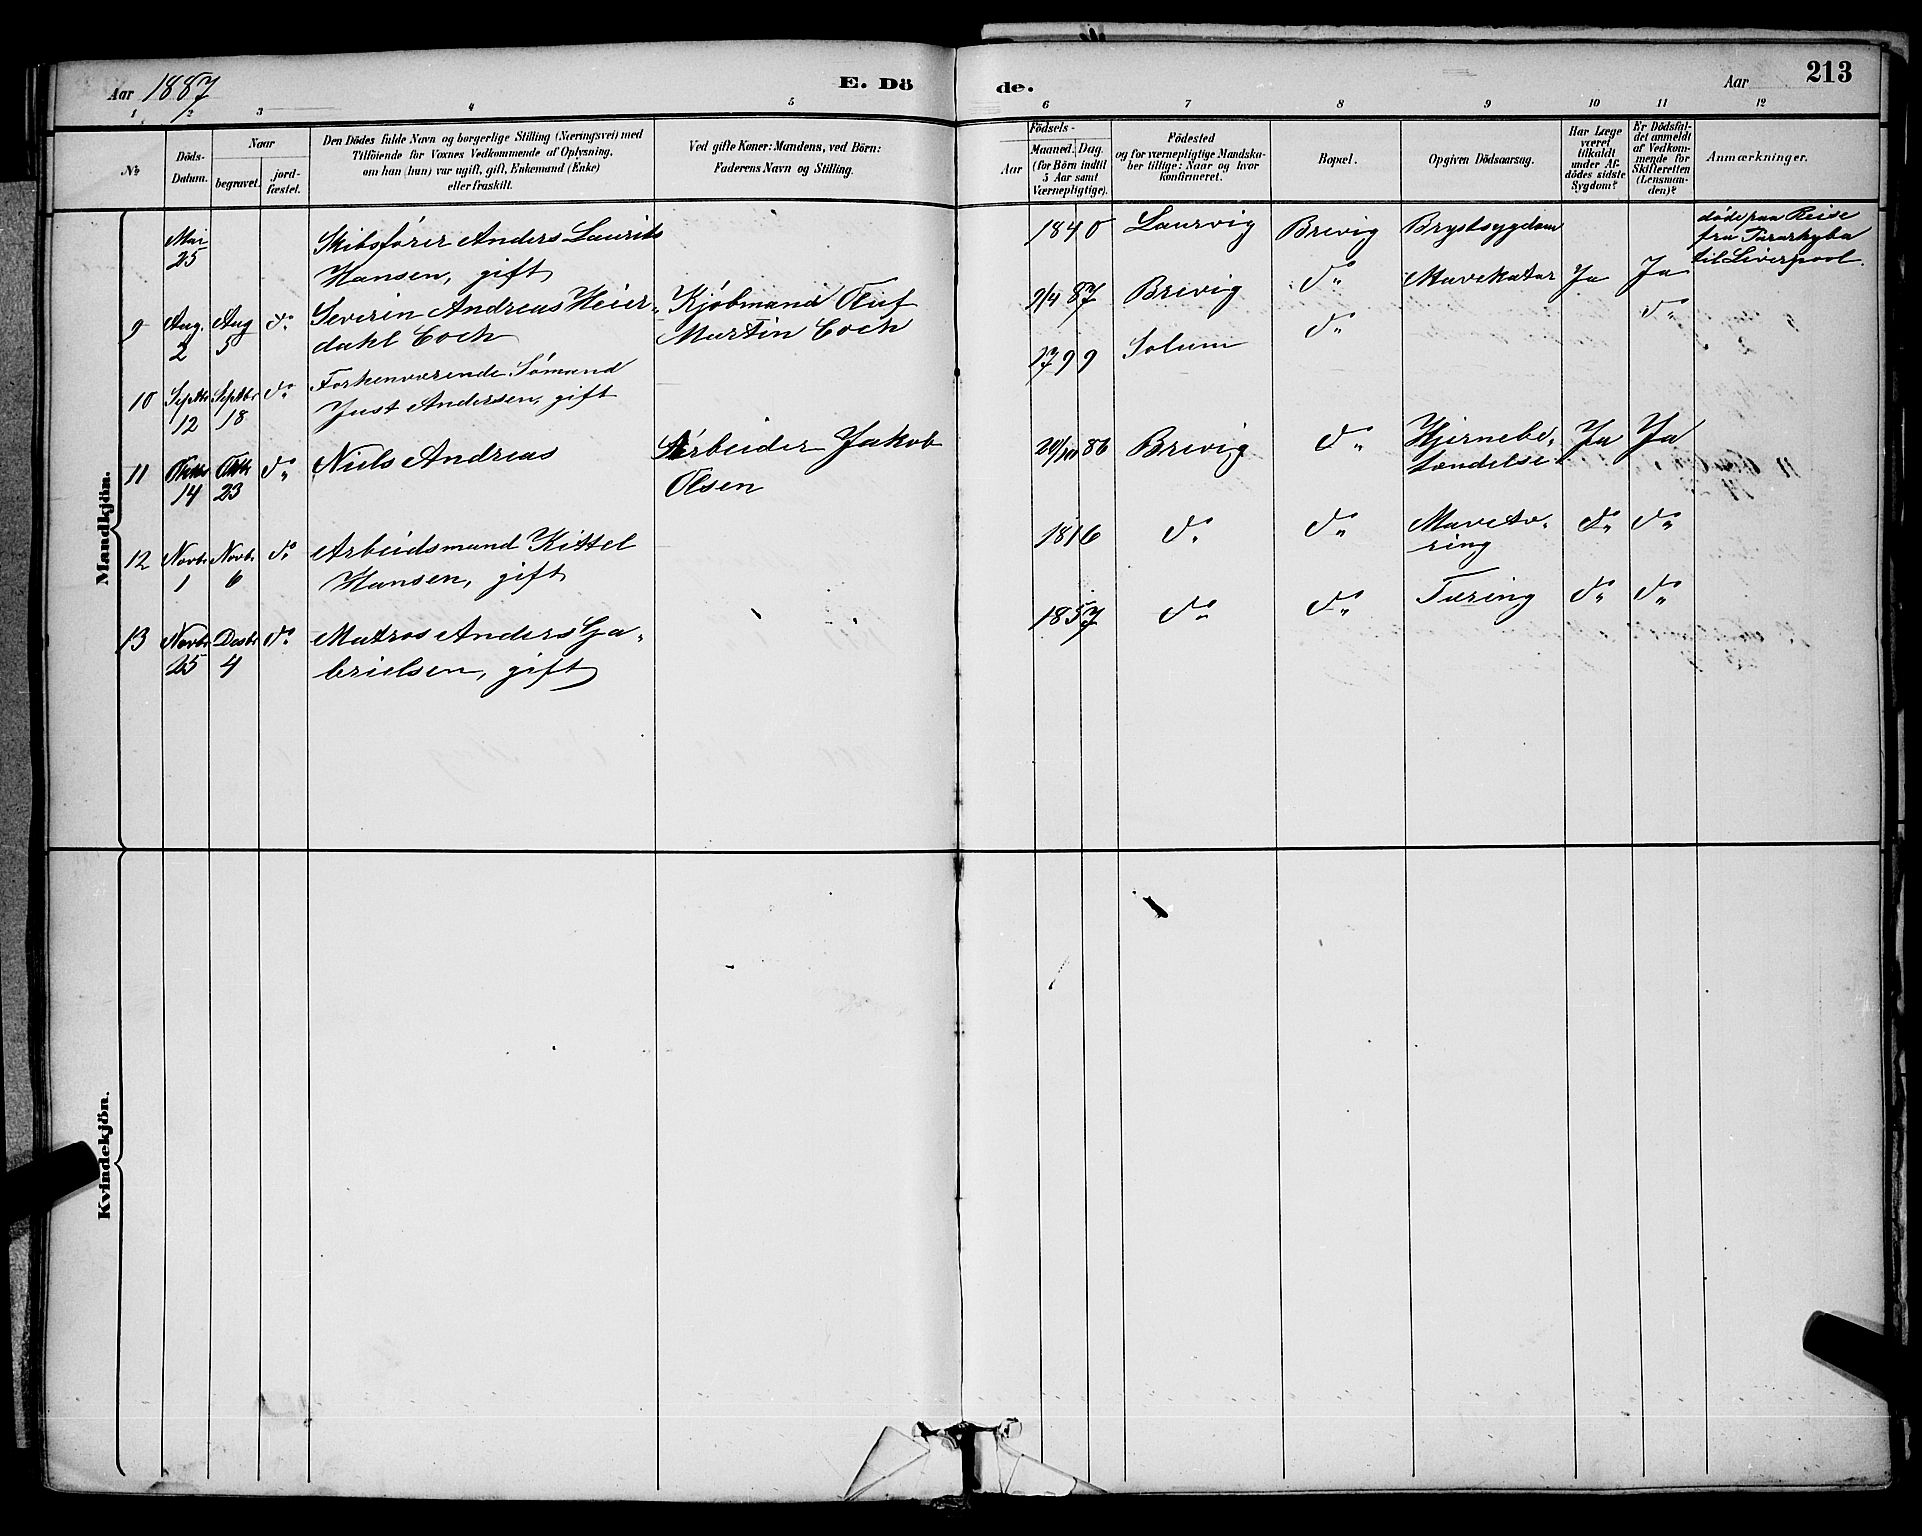 Aar 1887
E. Dö
de.
Aar
213
1 2 3 4 5 6 7 8 9 10 11 12
No
Döds-
Datum.
Naar
begravet.
jord-
fæstet.
Den Dödes fulde Navn og borgerlige Stilling (Næringsvei) med
Tilföiende for Voxnes Vedkommende af Oplysning.
om han (hun) var ugift, gift, Enkemand (Enke)
eller fraskilt.
Ved gifte Koner: Mandens, ved Börn:
Faderens Navn og Stilling.
Födsels-
Aar
Maaned. Dag.
(for Börn indtil
5 Aar samt
Værnepligtige).
Födested
og for værnepligtige Mandska-
ber tillige: Naar og hvor
konfirmeret.
Bopæl.
Opgiven Dödsaarsag.
Har Læge
været
tilkaldt
under Af-
dödes sidste
Sygdom?
Er Dödsfal-
det anmeldt
af Vedkom-
mende for
Skifteretten
(Lensman-
den)?
Anmærkninger.
Mandkjön.
Mai
25
Skibsfører Anders Laurits
Hansen, gift
1840 Laurvig Brevig Brystsygdom
døde paa Reise
fra
til Liverpool.
9 Aug. 2 Aug 5 do
Severin Andreas Heier-
dahl Coch
Kjøbmand Oluf
Martin Coch
9/4 87 Brevig do Mavekatar Ja Ja
10 Septbr 12 Septbr 18 do
Forhenværende Sømand
Just Andersen, gift
1799 Solum do do
11 Oktbr 14 Oktb 23 do
Niels Andreas
Arbeider Jakob
Olsen
20/10 86 Brevig do Hjernebe-
tændelse Ja Ja
12 Novbr 1 Novbr 6 do
Arbeidsmand Kittel
Hansen, gift
1816 do do Mavetæ-
ring do do
13 Novbr 25 Desbr 4 do
Matros Anders Ga-
brielsen, gift
1857 do do Tæring do do
Kvindekjön.